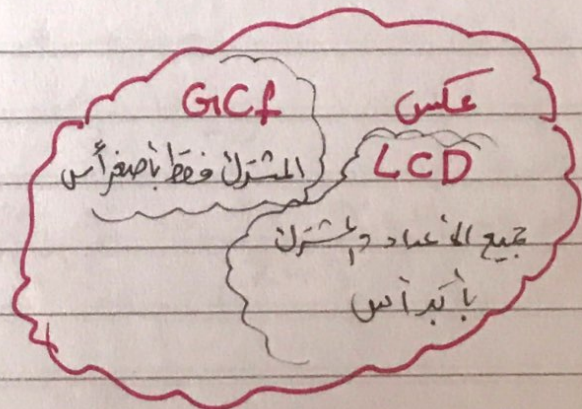 GCf
عكس
المشترك فقط بأصغر أس
LCD
جميع الأعداد والمشترك
بأكبر أس